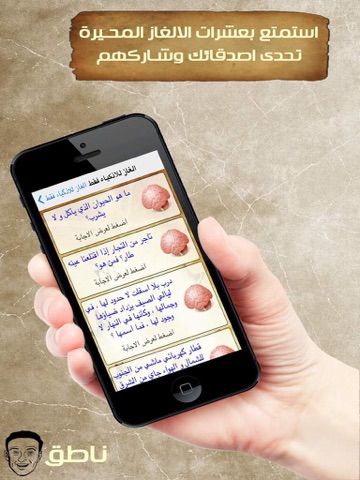 استمتع بعشرات الالغاز المحيرة
تحدى اصدقائك وشاركهم
الغاز للاذكياء فقط
الغاز للاذكياء فقط
ما هو الحيوان الذي ياكل و لا
يشرب؟
اضغط لعرض الاجابة
تاجر من التجار إذا اقتلعنا عينه
طار؟ فمن هو؟
اضغط لعرض الاجابة
درب بلا اسفلت لا حدود لها ، في
ليالي الصيف يزداد ضياؤها
وجمالها ، وكأنها في النهار لا
وجود لها ، فما اسمها ؟
اضغط لعرض الاجابة
قطار كهربائي ماشي من الجنوب
للشمال و الهواء جاي من الشرق
ناطق